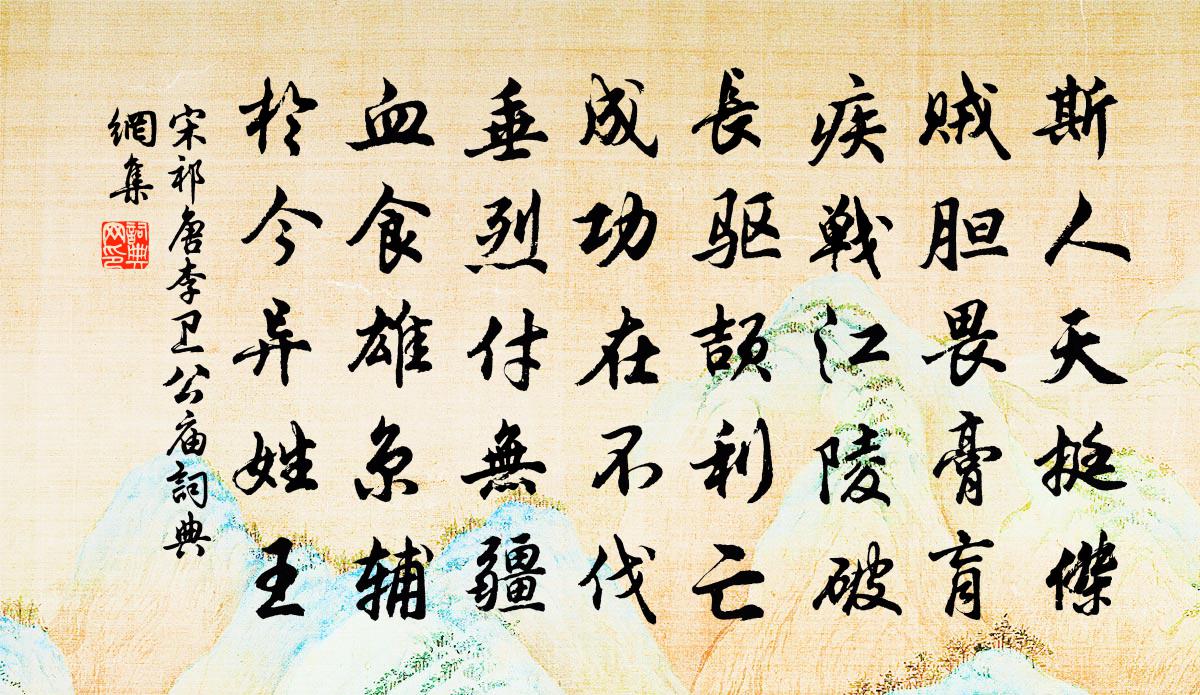 斯人天挺傑
賊胆畏膏肓
疾戦江陵破
長驱頡利亡
成功在不伐
垂烈付無疆
血食雄京辅
於今异姓王
宋祁唐李卫公庙詞典
網集
詞典网印